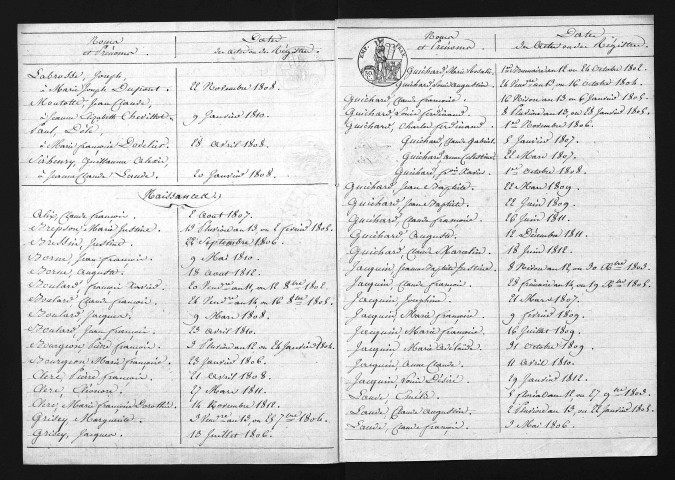 Noms
et Prénoms.
Dates
des actes ou des Registres.
Labrosse, Joseph,
à Marie Joseph Dupont. 22 Novembre 1808.
Moutotte, Jean Claude,
à Jeanne Elizabeth Chevillot. 9 Janvier 1810.
Paul, Déle,
à Marie françoise 18 Avril 1808.
Guillaume
à Jeanne Claude Laude. 20 Janvier 1808.
Naissances
Alix, Claude françois. 2 Aout 1807.
Marie Justine. 13 Pluviose an 13 ou 2 février 1805.
Bressin, Justine. 22 Septembre 1806.
Borne, Jean françois. 9 Mai 1810.
Borne, Auguste. 18 Aout 1812.
Boulard, françois Xavier. 20 Vend.re an 11, ou 12 8bre 1802.
Boulard, Claude françois. 24 Vend.re an 14 ou 16 8bre 1805.
Boulard, Jacques. 9 Mars 1808.
Boulard, Jean françois. 23 Avril 1810.
Bourgeon, Pierre françois. 3 Pluviose an 12 ou 24 Janvier 1804.
Bourgeon, Marie françoise. 23 Janvier 1806.
Clerc, Pierre françois. 21 Avril 1808.
Clerc, Eléonore. 27 Mars 1811.
Clerc, Marie françoise Dorothée. 14 Novembre 1812.
Grisey, Marguerite. 3 Vend.re an 13, ou 25 7bre 1804.
Grisey, Jacques. 13 Juillet 1806.
Noms
et Prénoms
Dates
des Actes ou des Registres.
Guichard, Marie 2 Brumaire an 11 ou 24 Octobre 1802.
Guichard, Augustin 24 Vend.re an 13 ou 16 Octobre 1804.
Guichard, Claude françois. 16 Nivose an 13 ou 6 Janvier 1805.
Guichard, Louis ferdinand. 8 Pluviose an 13, ou 28 Janvier 1805.
Guichard, Charles ferdinand. 1er Novembre 1806.
Guichard, Claude Gabriel. 5 Janvier 1807.
Guichard, Anne Célestine 22 Mars 1807.
Guichard, Xavier. 1er Octobre 1808.
Guichard, Jean Baptiste 22 Mars 1809.
Guichard, Jean Baptiste. 22 Juin 1809.
Guichard, Claude françois. 26 Juin 1811.
Guichard, Auguste. 12 Décembre 1811.
Guichard, Claude Marcelin. 18 Juin 1812.
Jacquin, Jeanne Baptiste Justine. 8 Nivose an 12, ou 30 Xbre 1803.
Jacquin, Claude françois. 28 frimaire an 14, ou 19 Xbre 1805.
Jacquin, Josephine. 21 Mars 1807.
Jacquin, Marie françoise. 9 février 1809.
Jacquin, Marie françoise. 16 Juillet 1809.
Jacquin, Marie Adelaïde. 31 Octobre 1809.
Jacquin, Anne Claude. 11 Avril 1810.
Jacquin, Louis Désiré. 29 Janvier 1812.
Laude, Emilie. 5 floréal an 11, ou 27 1803.
Laude, Claude Augustin. 2 Pluviose an 13, ou 22 Janvier 1805.
Laude, Claude françois. 3 Mai 1806.